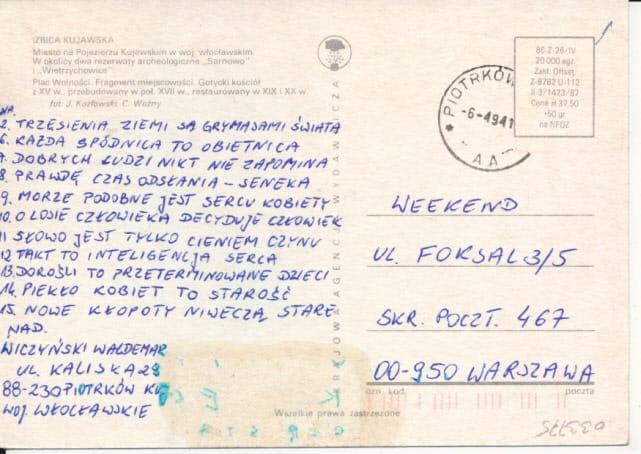 IZBICA KUJAWSKA
Miasto na Pojezierzu Kujawskim w woj. włocławskim.
W okolicy dwa rezerwaty archeologiczne „Sarnowo"
i „Wietrzychowice"
Plac Wolności. Fragment miejscowości. Gotycki kościół
z XV w., przebudowany w poł. XVII w., restaurowany w XIX i XX w.
fot. J. Kozłowski, C. Woźny
2. TRZĘSIENIA ZIEMI SĄ GRYMASAMI ŚWIATA
6. KAŻDA SPÓDNICA TO OBIETNICA
DOBRYCH LUDZI NIKT NIE ZAPOMINA
8. PRAWDĘ CZAS ODSŁANIA - SENEKA
9. MORZE PODOBNE JEST SERCU KOBIETY
10. O LOSIE CZŁOWIEKA DECYDUJE CZŁOWIEK
11 SŁOWO JEST TYLKO CIENIEM CZYNU
12 TAKT TO INTELIGENCJA SERCA
13. DOROŚLI TO PRZETERMINOWANE DZIECI
14. PIEKŁO KOBIET TO STAROŚĆ
15. NOWE KŁOPOTY NIWECZĄ STARE
NAD.
WICZYŃSKI WALDEMAR
UL. KALISKA 29
88-230 PIOTRKÓW KUJ
WOJ. WŁOCŁAWSKIE
KRAJOWA AGENCJA WYDAWNICZA
Wszelkie prawa zastrzeżone
PIOTRKÓW
-6-4941
AA
86-Z-26/IV
20 000 egz.
Zakł. Offset.
Z-8782 U-112
II-3/1423/87
Cena zł 37,50
+50 gr
na NFOZ
WEEKEND
UL. FOKSAL 3/5
SKR. POCZT. 467
00-950 WARSZAWA
ozn. kod. poczta